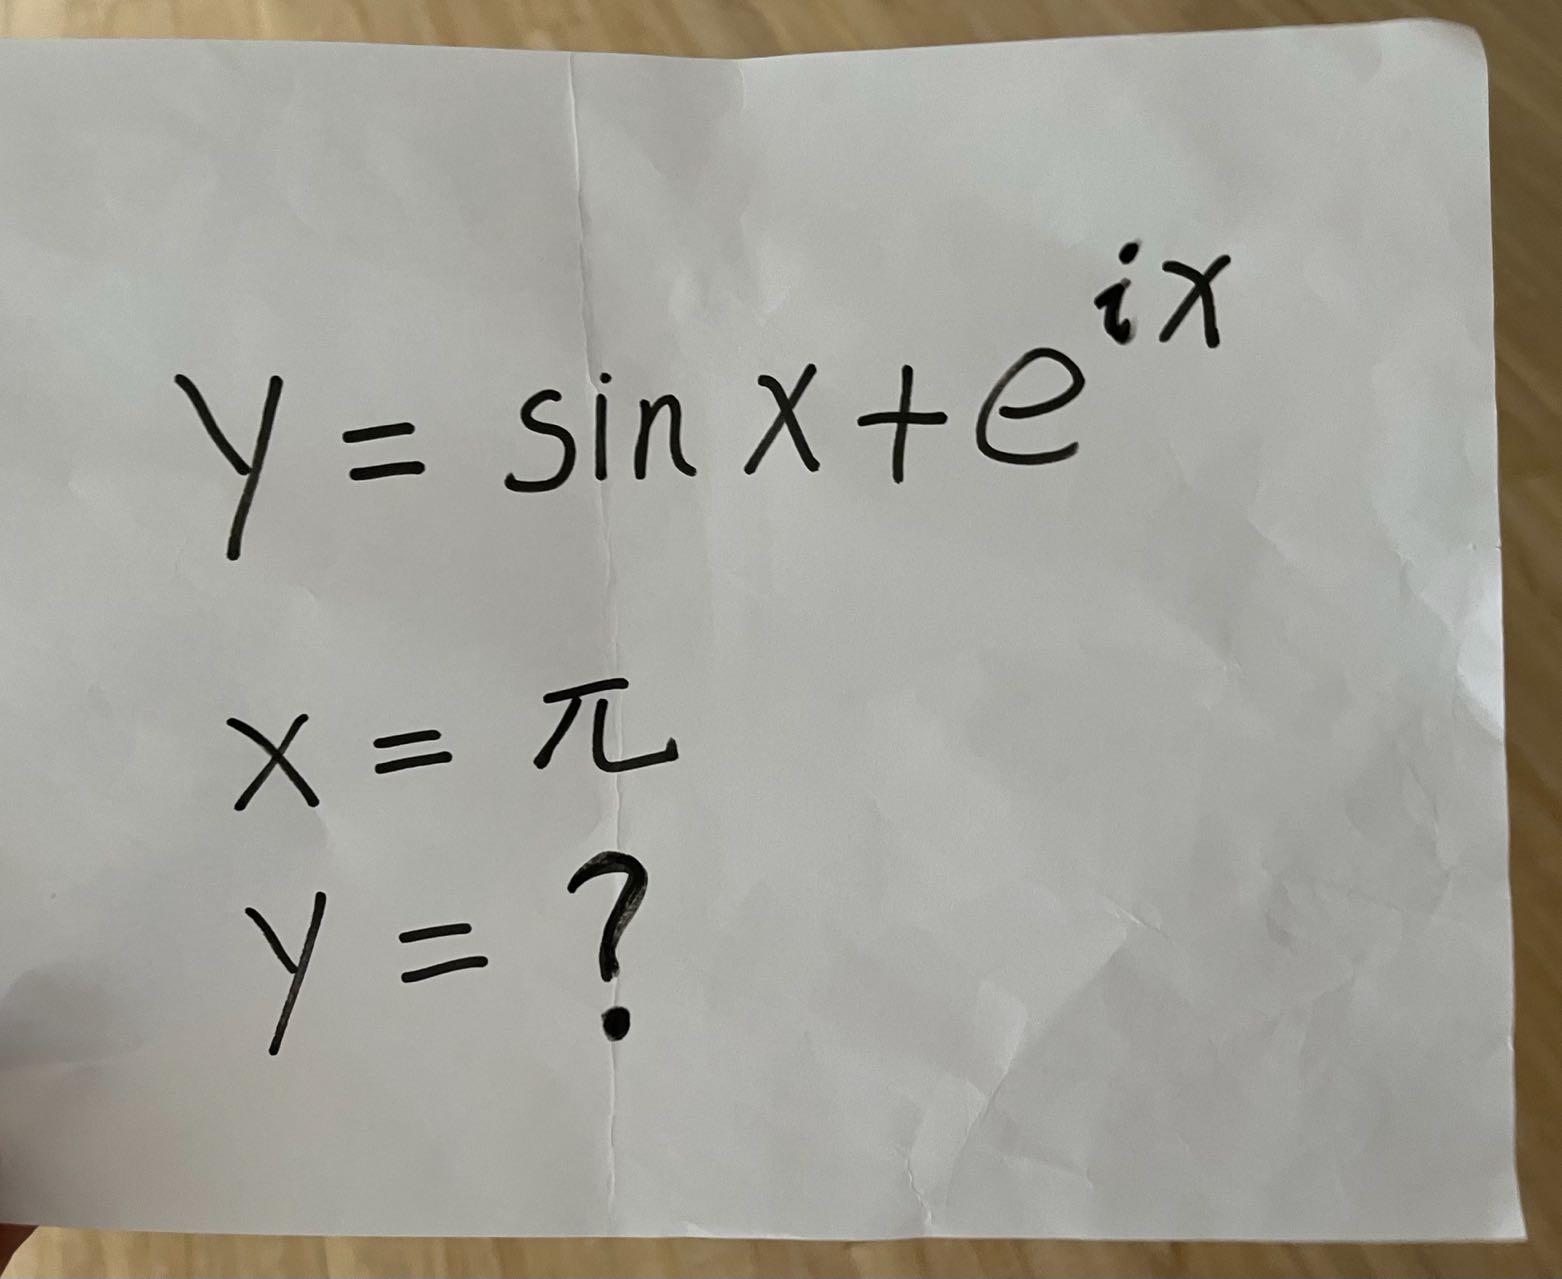 y = sin x + e^{ix}
x = π
y = ?